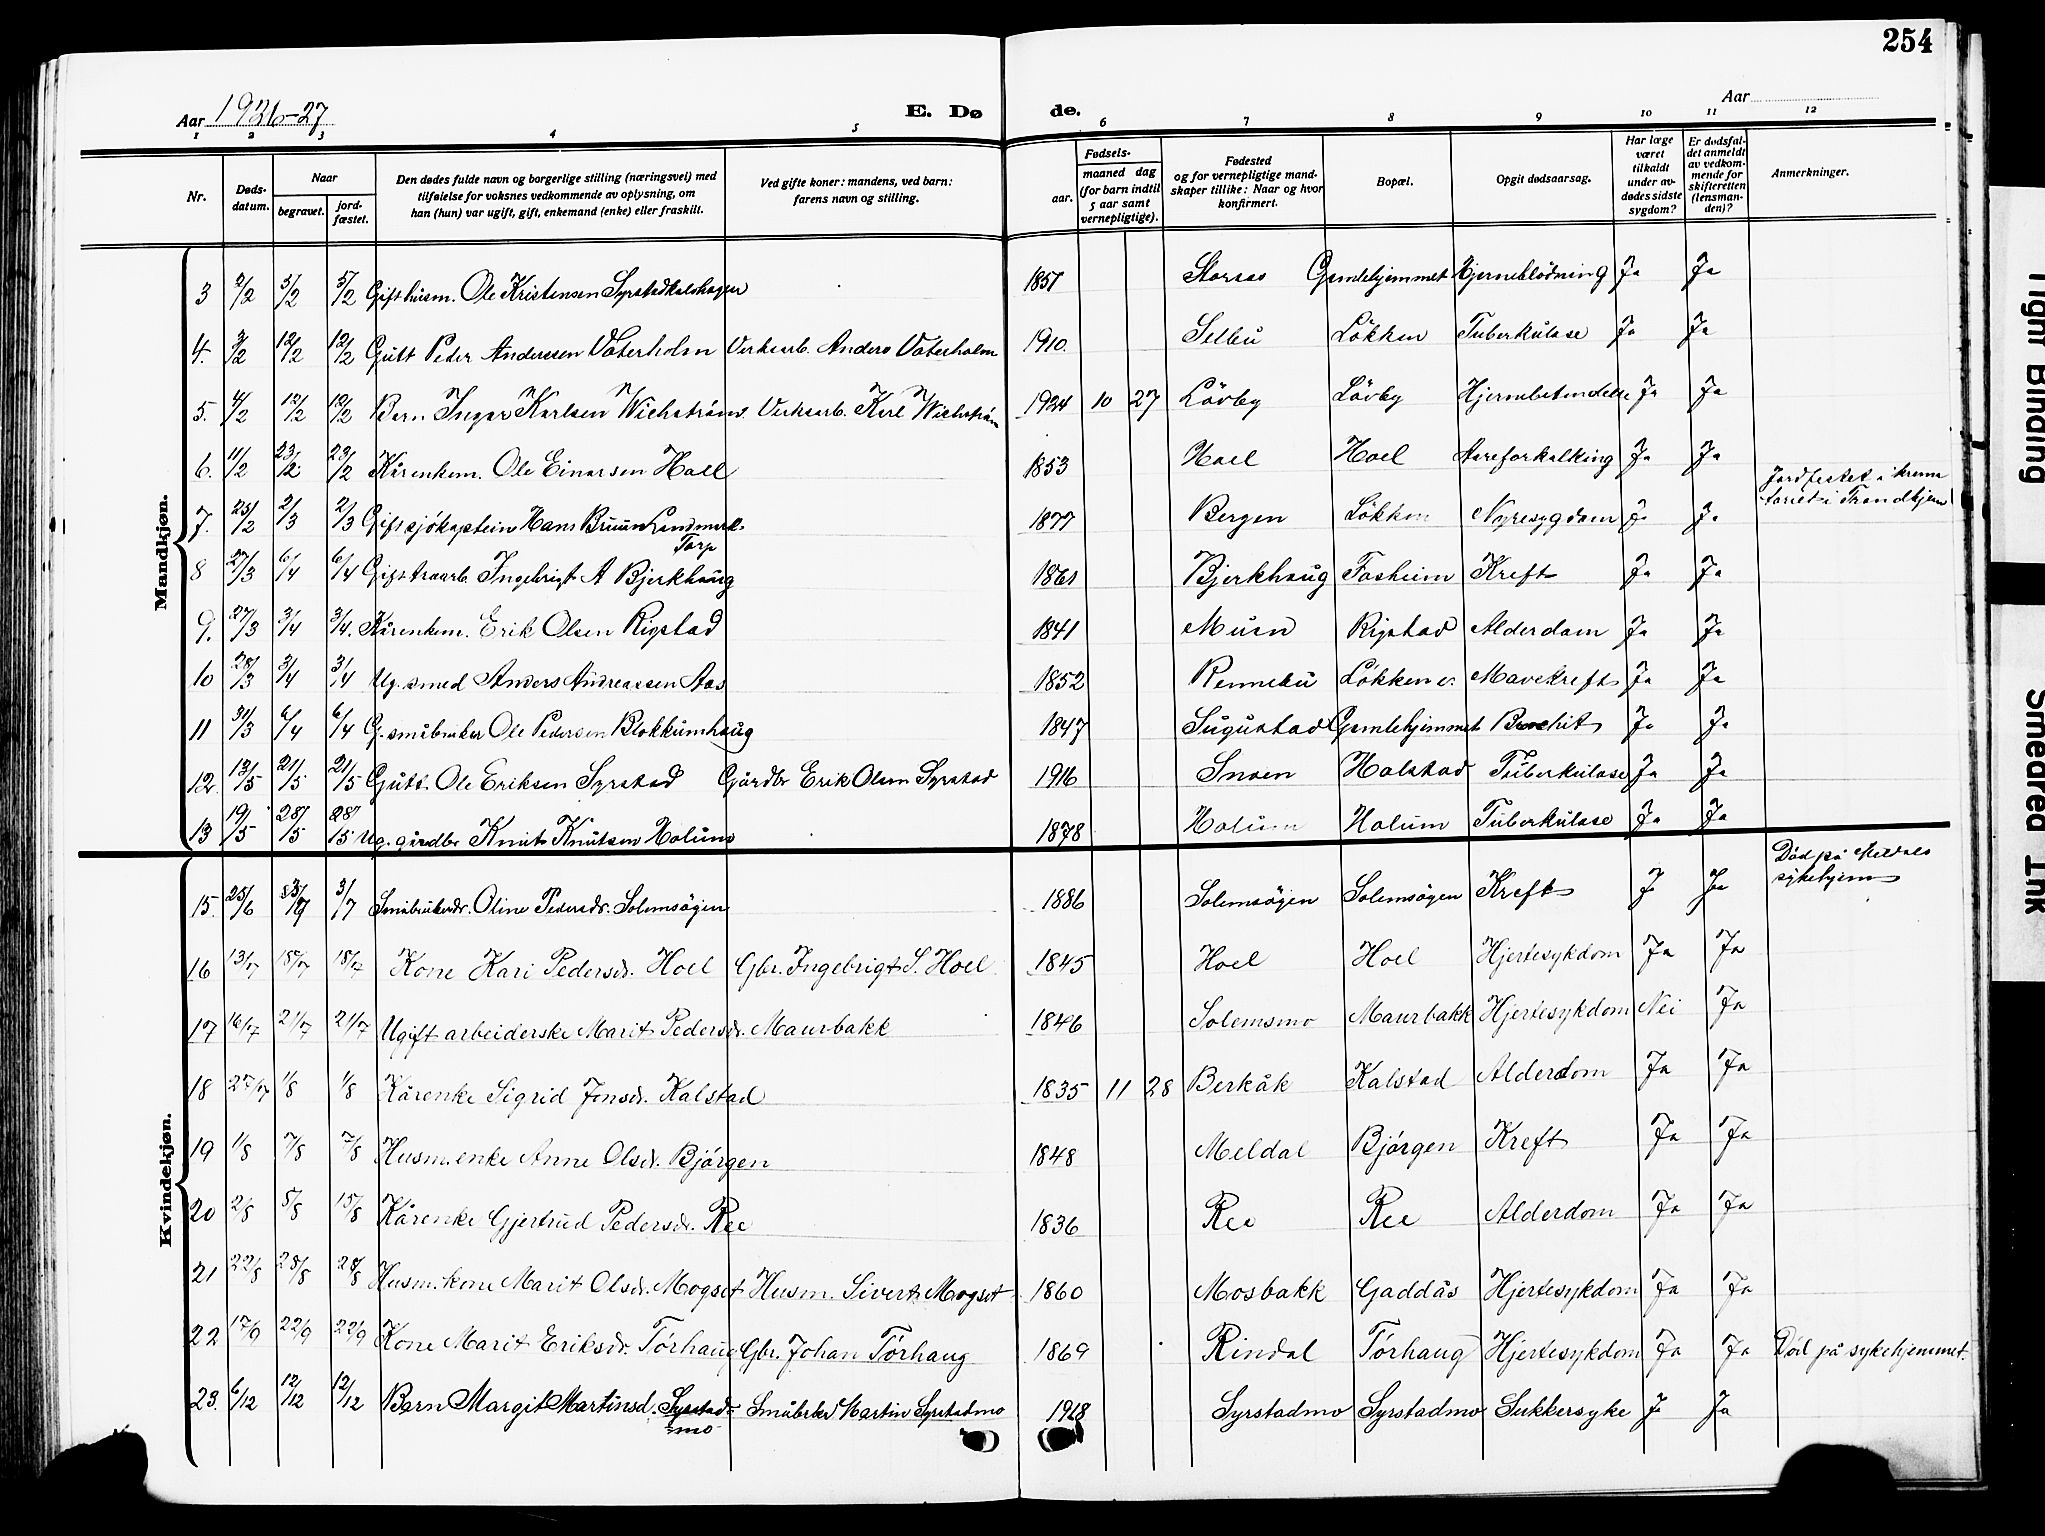 254
Aar 1926-27 E. Dø de. Aar
1 2 3 4 5 6 7 8 9 10 11 12
Nr. Døds-datum. Naar begravet. jord-fæstet. Den dødes fulde navn og borgerlige stilling (næringsvei) med tilføielse for voksnes vedkommende av oplysning, om han (hun) var ugift, gift, enkemand (enke) eller fraskilt. Ved gifte koner: mandens, ved barn: farens navn og stilling. Fødsels- aar. maaned dag (for barn indtil 5 aar samt vernepligtige). Fødested og for vernepligtige mand-skaper tillike: Naar og hvor konfirmert. Bopæl. Opgit dødsaarsag. Har læge været tilkaldt under av-dødes sidste sygdom? Er dødsfal-det anmeldt av vedkom-mende for skifteretten (lensman-den)? Anmerkninger.
Mandkjøn.
3 2/2 5/2 5/2 Gift husm. Ole Kristensen Syrstadkalshagen 1851 Storaas Gamlehjemmet Hjerneblödning Ja Ja
4. 3/2 12/2 12/2 Gutt Peder Anderssen Vaterholm Verksarb. Anders Vaterholm 1910. Selbu Lökken Tuberkulose Ja Ja
5. 4/2 12/2 12/2 Barn Ingar Karlsen Wichström. Verksarb. Karl Wichström 1924 10 27 Lövby Lövby Hjernebetendelse Ja Ja
6. 11/2 23/2 23/2 Kårenkem. Ole Einarsen Hoel 1853 Hoel Hoel Aareforkalking Ja Ja
7. 25/2 2/3 2/3 Gift sjókaptein Hans Bruun Landmark Torp 1877 Bergen Lökken Nyresygdom Ja Ja Jordfestet i krematoriet i Trondhjem
8 27/3 6/4 6/4 Gift traarb. Ingebrigt A Bjerkhaug 1861 Bjerkhaug Fosheim Kreft Ja Ja
9. 27/3 3/4 3/4. Kårenkem. Erik Olsen Rigstad 1841 Muan Rigstad Alderdom Ja Ja
10 28/3 3/4 3/4 Ug. smed Anders Andreassen Aas 1852 Rennebu Løkken v. Mavekreft Ja Ja
11 31/3 6/4 6/4 G. småbruker Ole Pedersen Blokkumhaug 1847 Gamlehjemmet Bronchit Ja Ja
12. 13/5 21/5 21/5 Gutt. Ole Eriksen Syrstad Gårdbr Erik Olsen Syrstad 1916 Snoen Halstad Tuberkulose Ja Ja
13 19/5 28/5 28/5 Ug. gårdbr Knut Knutsen Holum 1878 Holum Holum Tuberkulose Ja Ja
Kvindekjøn.
15. 25/6 3/7 3/7 Småbrukerdr. Oline Pedersdr. Solemsögen 1886 Solemsögen Solemsögen Kreft Ja Ja Död på Meldals sykehjem
16 13/7 18/7 18/7 Kone Kari Pedersdr. Hoel Gbr. Ingebrigt S. Hoel. 1845 Hoel Hoel Hjertesykdom Ja Ja
17 16/7 21/7 21/7 Ugift arbeiderske Marit Pedersdr. Maurbakk 1846 Solemsmo Maurbakk Hjertesykdom Nei Ja
18 27/7 1/8 1/8 Kårenke Sigrid Jonsdr. Kalstad 1835 11 28 Berkåk Kalstad Alderdom Ja Ja
19 1/8 7/8 7/8 Husm. enke Anne Olsdr. Bjørgen 1848 Meldal Bjørgen Kreft Ja Ja
20 2/8 5/8 15/8 Kårenke Gjertrud Pedersdr. Ree 1836 Ree Ree Alderdom Ja Ja
21 22/8 28/8 28/8 Husm. kone Marit Olsdr. Mogset Husm. Sivert Mogset 1860 Mosbakk Gaddås Hjertesykdom Ja Ja
22 17/9 22/9 22/9 Kone Marit Eriksdr. Tørhaug Gbr. Johan Tørhaug 1869 Rindal Tørhaug Hjertesykdom Ja Ja Död på sykehjemmet.
23. 6/12 12/12 12/12 Barn Margit Martinsd. Syrstadmo Småbrker Martin Syrstadmo 1918 Syrstadmo Syrstadmo Sukkersyke Ja Ja
Tight Binding
Smeared Ink